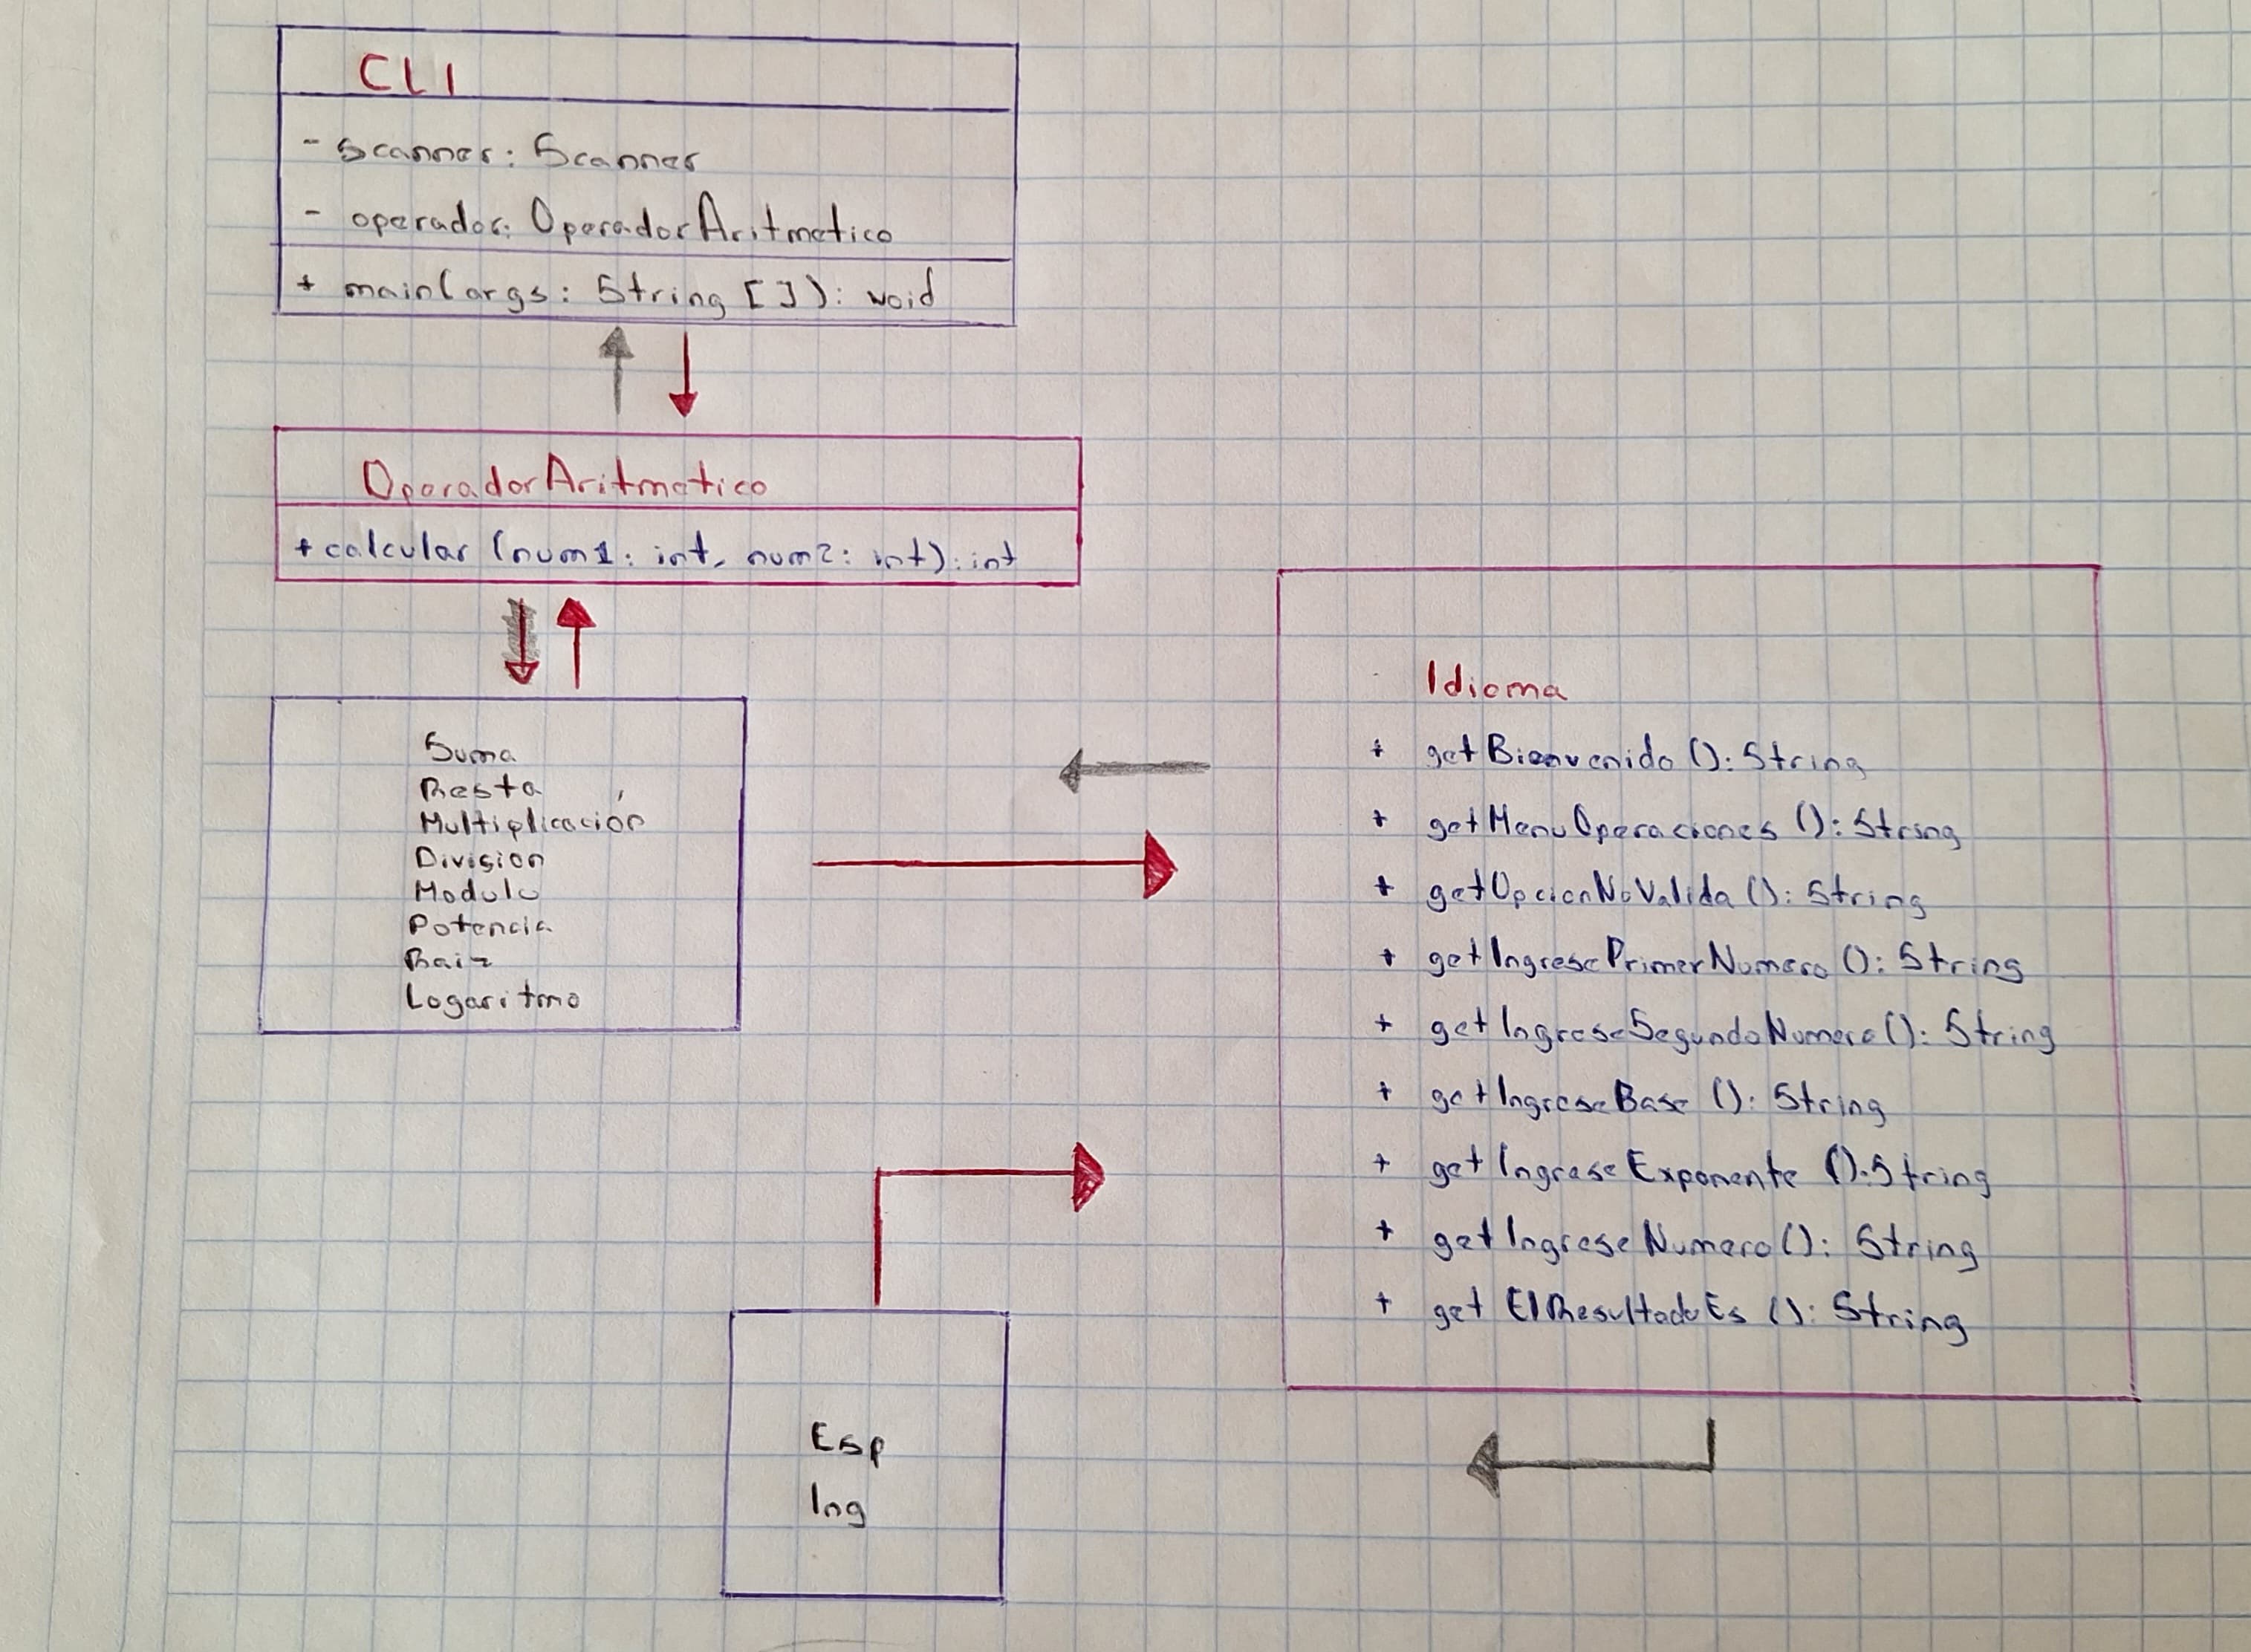 CLI
- scanner: Scanner
- operador: OperadorAritmetico
+ main(args: String []): void
OperadorAritmetico
+ calcular (num1: int, num2: int): int
Suma
Resta
Multiplicación
Division
Modulo
Potencia
Raiz
Logaritmo
Idioma
+ getBienvenido (): String
+ getMenuOperaciones (): String
+ getOpcionNoValida (): String
+ getIngresePrimerNumero (): String
+ getIngreseSegundoNumero (): String
+ getIngreseBase (): String
+ getIngreseExponente (): String
+ getIngreseNumero (): String
+ get ElResultadoEs (): String
Esp
Ing